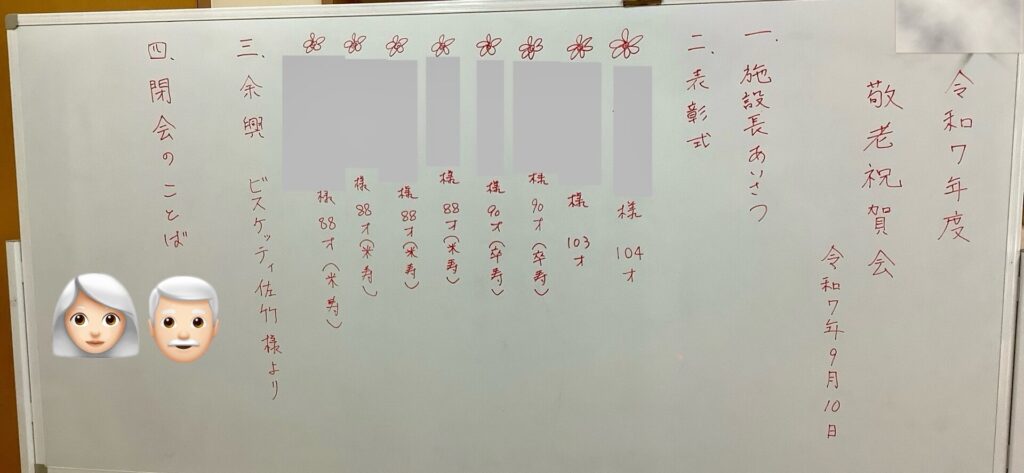 令和7年度
敬老祝賀会
令和7年9月10日
一、施設長あいさつ
二、表彰式
様 104才
様 103才
様 90才(卒寿)
様 90才(卒寿)
様 88才(米寿)
様 88才(米寿)
様 88才(米寿)
様 88才(米寿)
三、余興 ビスケッティ佐竹様より
四、閉会のことば